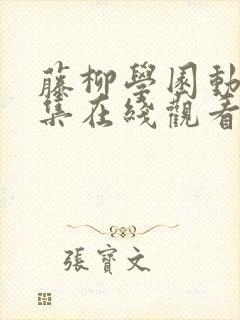 藤柳學園動
集在綫觀看
張寶文